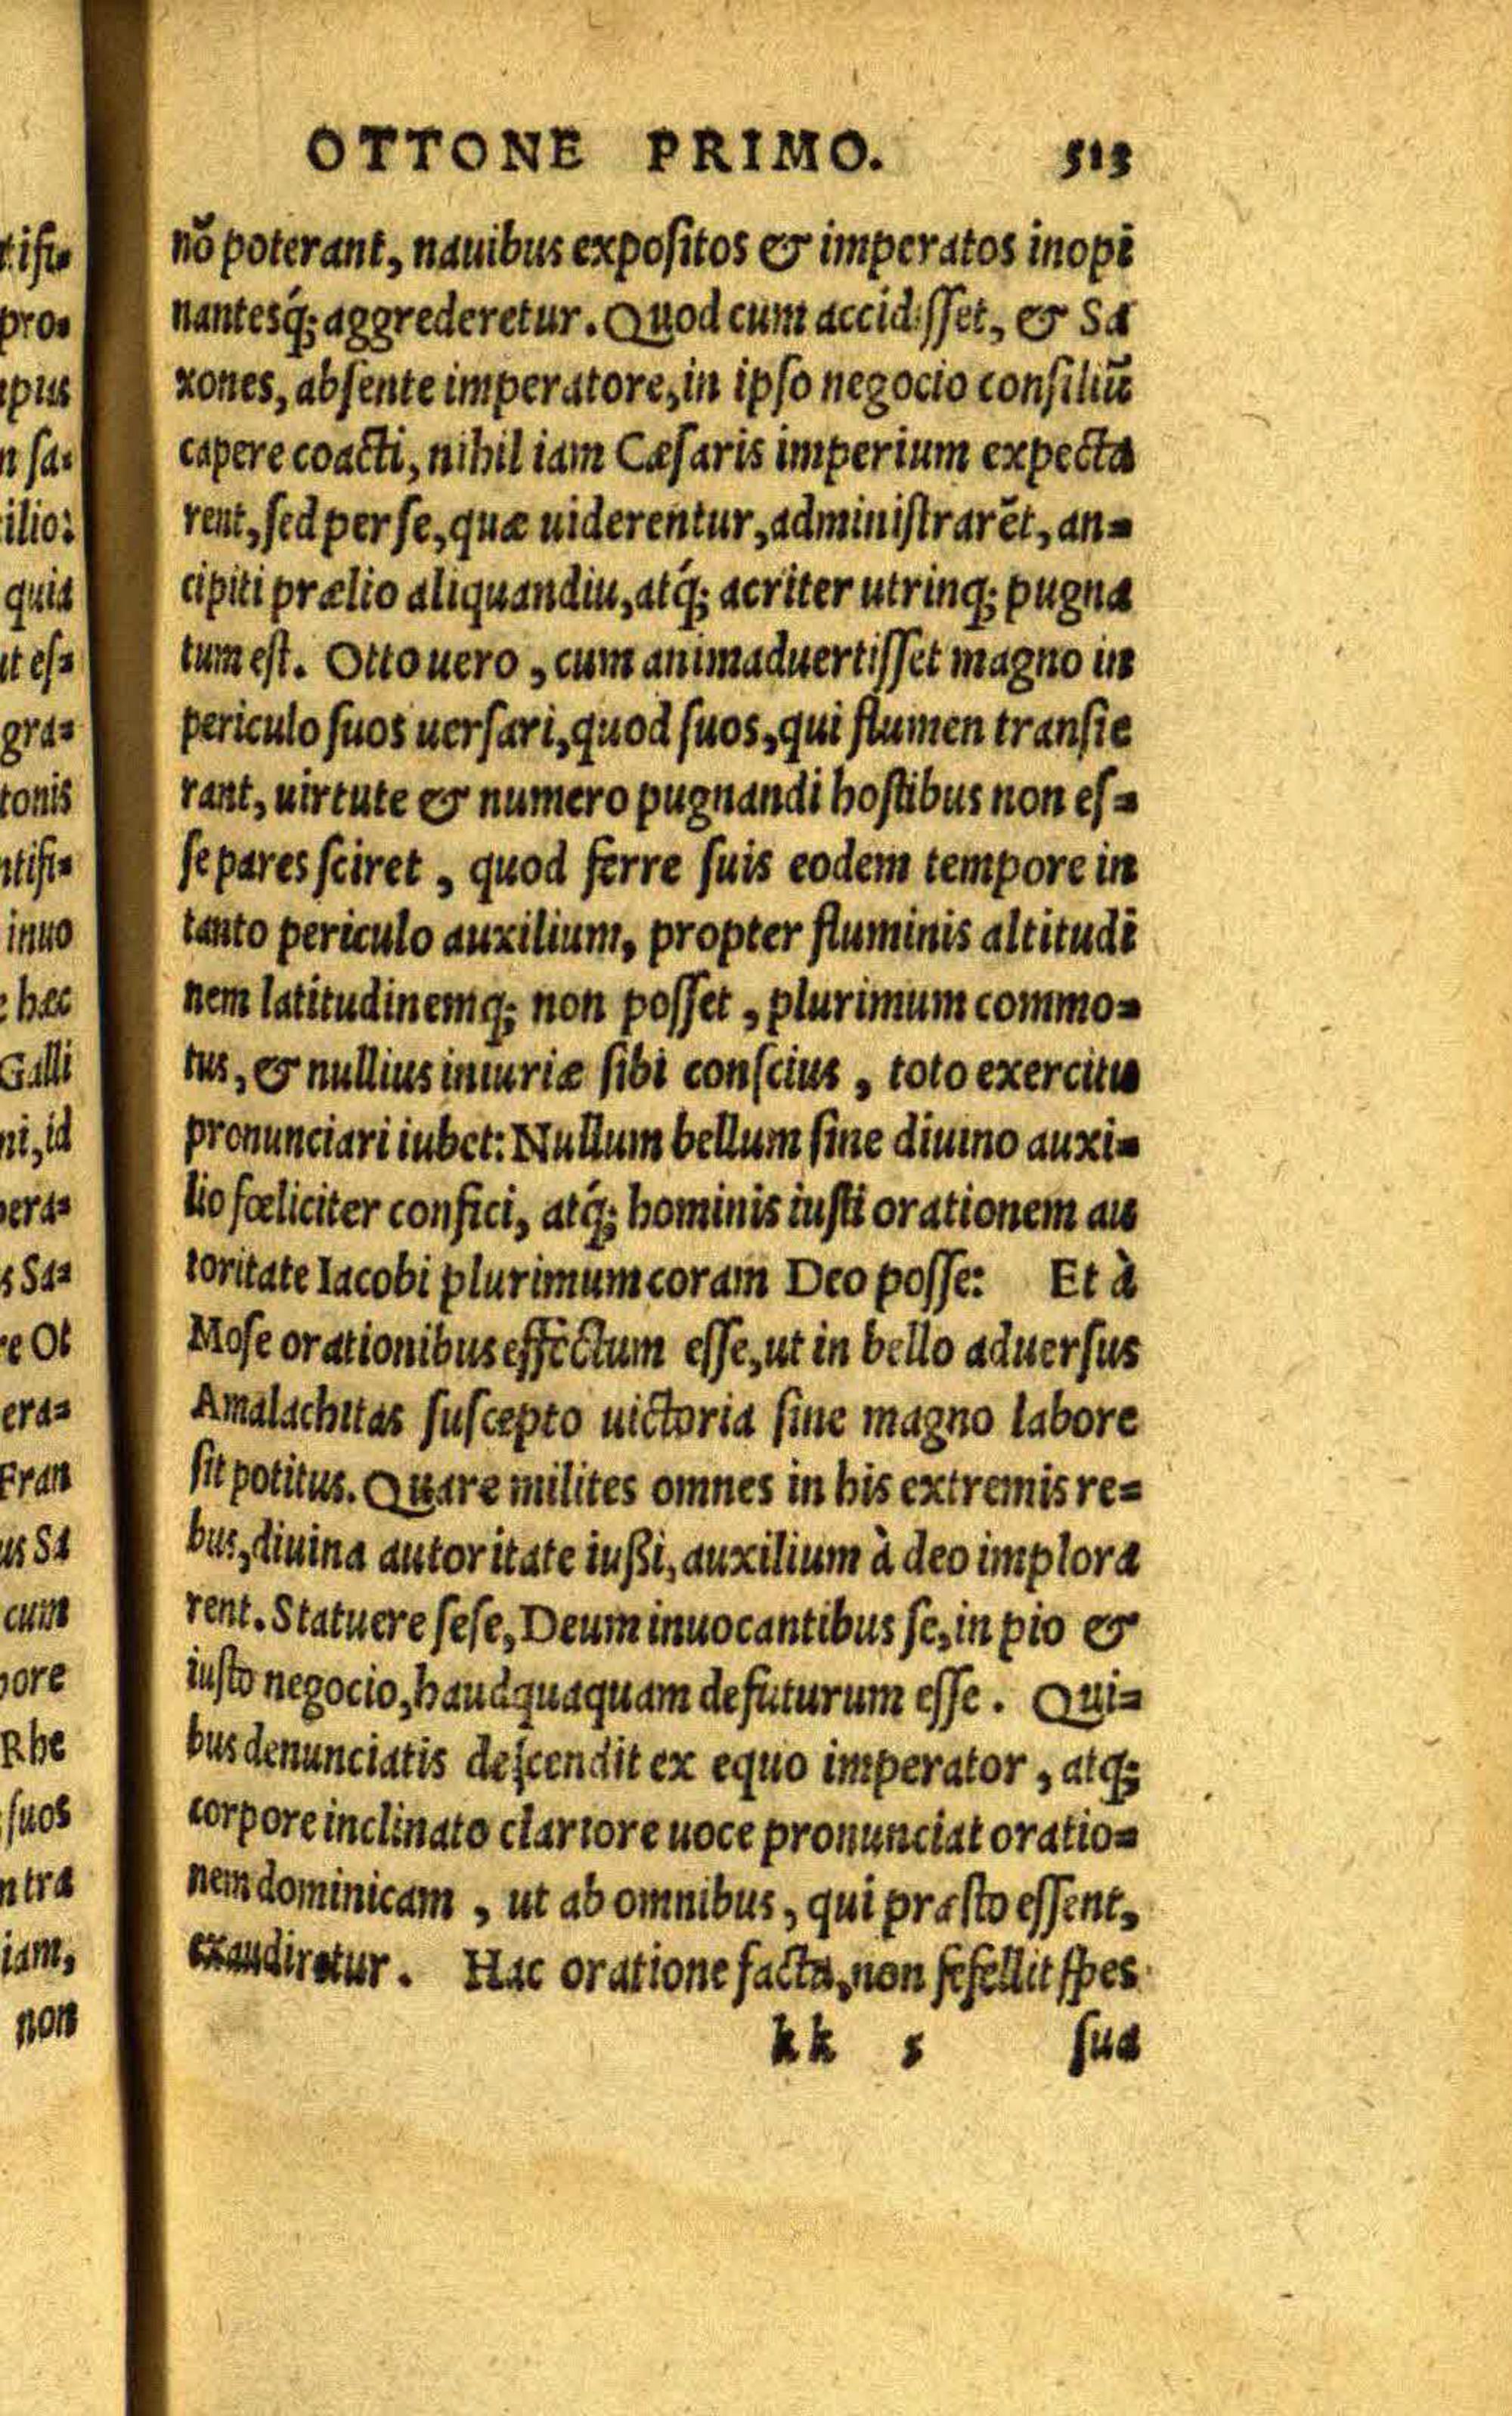 OTTONE PRIMO. 513
nõ poterant, nauibus expositos & imperatos inopi
nantesq́; aggrederetur. Quod cum accidisset, & Sa
xones, absente imperatore, in ipso negocio consiliũ
capere coacti, nihil iam Cæsaris imperium expecta
rent, sed per se, quæ uiderentur, administrarẽt, an=
cipiti prælio aliquandiu, atq́; acriter utrinq; pugna
tum est. Otto uero, cum animaduertisset magno in
periculo suos uersari, quod suos, qui flumen transie
rant, uirtute & numero pugnandi hostibus non es=
se pares sciret, quod ferre suis eodem tempore in
tanto periculo auxilium, propter fluminis altitudi
nem latitudinemq; non posset, plurimum commo=
tus, & nullius iniuriæ sibi conscius, toto exercitu
pronunciari iubet: Nullum bellum sine diuino auxi=
lio fœliciter confici, atq́; hominis iusti orationem au
toritate Iacobi plurimum coram Deo posse: Et à
Mose orationibus effectum esse, ut in bello aduersus
Amalachitas suscepto uictoria sine magno labore
sit potitus. Quare milites omnes in his extremis re=
bus, diuina autoritate iußi, auxilium à deo implora
rent. Statuere sese, Deum inuocantibus se, in pio &
iusto negocio, haudquaquam defuturum esse. Qui=
bus denunciatis descendit ex equo imperator, atq;
corpore inclinato clariore uoce pronunciat oratio=
nem dominicam, ut ab omnibus, qui præsto essent,
exaudiretur. Hac oratione facta, non fefellit spes
kk 5 sua
tifi=
pro=
pus
n sa=
ilio:
quia
ut es=
gra=
tonis
ntifi=
inuo
hæc
Galli
ni, id
pera=
s Sa=
re Ot
era=
Fran
us Sa
cum
pore
Rhe
suos
ntra
iam,
non